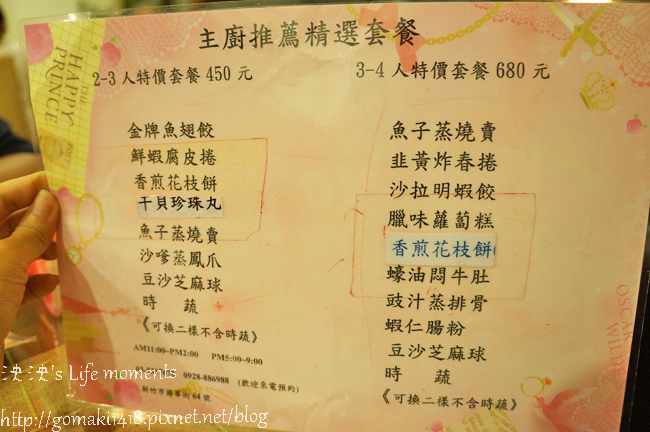 主廚推薦精選套餐
2-3 人特價套餐 450 元
金牌魚翅餃
鮮蝦腐皮捲
香煎花枝餅
干貝珍珠丸
魚子蒸燒賣
沙嗲蒸鳳爪
豆沙芝麻球
時 蔬
《可換二樣不含時蔬》
AM11:00~PM2:00 PM5:00~9:00
0928-886988 (歡迎來電預約)
新竹市國華街 64 號
3-4 人特價套餐 680 元
魚子蒸燒賣
韭黃炸春捲
沙拉明蝦餃
臘味蘿蔔糕
香煎花枝餅
蠔油悶牛肚
豉汁蒸排骨
蝦仁腸粉
豆沙芝麻球
時 蔬
《可換二樣不含時蔬》
THE HAPPY
PRINCE
OSCAR
WILDE
泱泱's Life moments
http://gomaki1418.pixnet.net/blog